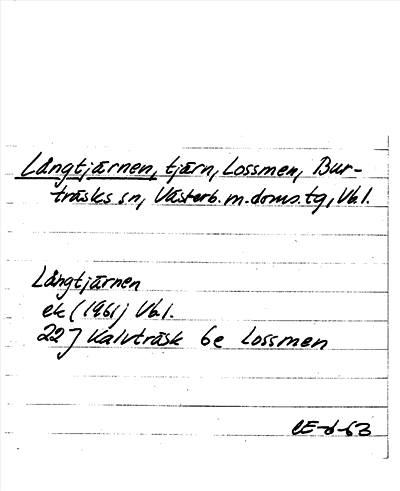 Långtjärnen, tjärn, Lossmen, Bur-
träsks sn, Västerb. m. doms. tg, Vbl.
Långtjärnen
ek (1961) Vbl.
22J Kalvträsk 6e Lossmen